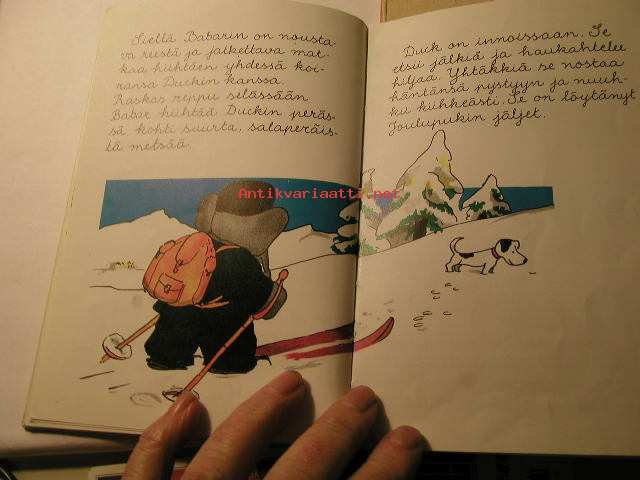 Sieltä Babarin on nousta-
va reestä ja jatkettava mat-
kaa hiihtäen yhdessä koi-
ransa Duckin kanssa.
Raskas reppu selässään
Babar hiihtää Duckin peräs-
sä kohti suurta, salaperäis-
tä metsää.
Duck on innoissaan. Se
etsii jälkiä ja haukahtelee
hiljaa. Yhtäkkiä se nostaa
häntänsä pystyyn ja nuuh-
kii kiihkeästi. Se on löytänyt
Joulupukin jäljet.
Antikvariaatti.net